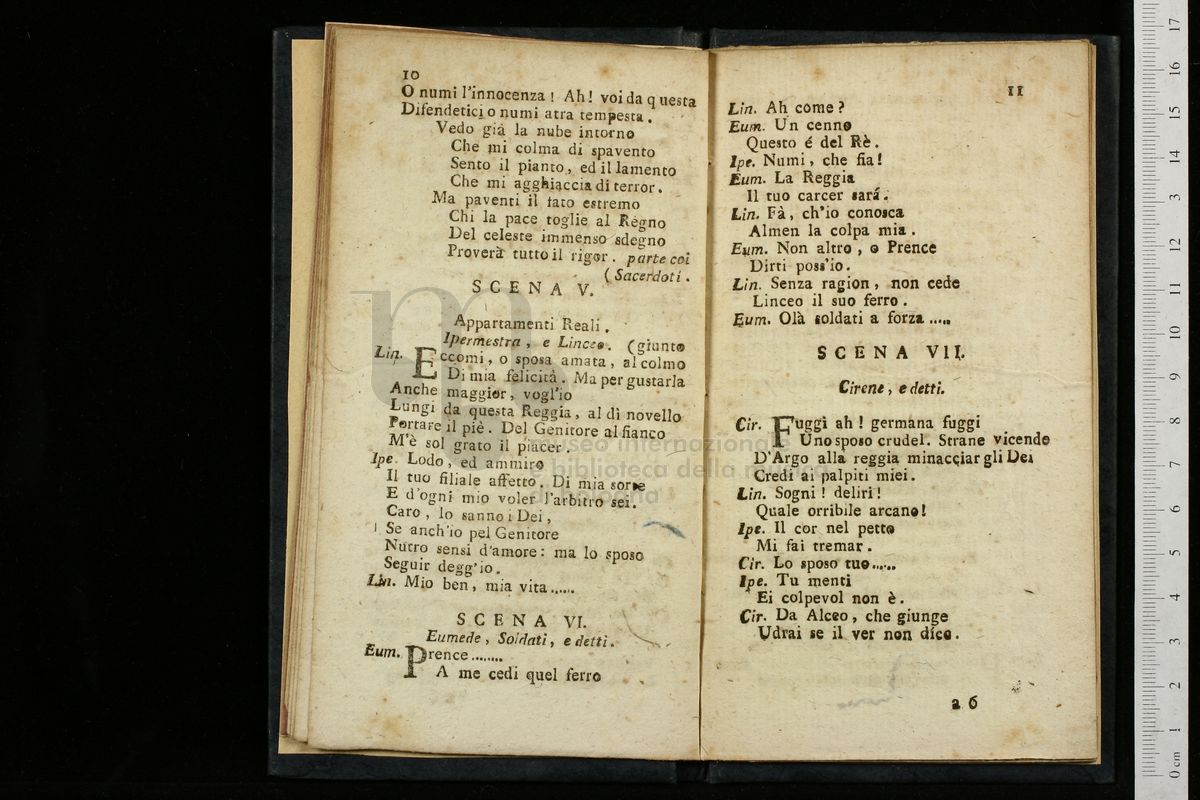 10
O numi l'innocenza! Ah! voi da questa
Difendetici o numi atra tempesta.
Vedo giá la nube intorno
Che mi colma di spavento
Sento il pianto, ed il lamento
Che mi agghiaccia di terror.
Ma paventi il fato estremo
Chi la pace toglie al Regno
Del celeste immenso sdegno
Proverà tutto il rigor. parte coi
(Sacerdoti.
SCENA V.
Appartamenti Reali.
Ipermestra, e Linceo. (giunto
Lin. Eccomi, o sposa amata, al colmo
Di mia felicità. Ma per gustarla
Anche maggior, vogl'io
Lungi da questa Reggia, al dì novello
Portare il piè. Del Genitore al fianco
M'è sol grato il piacer.
Ipe. Lodo, ed ammiro
Il tuo filiale affetto. Di mia sorte
E d'ogni mio voler l'arbitro sei.
Caro, lo sanno i Dei,
Se anch'io pel Genitore
Nutro sensi d'amore: ma lo sposo
Seguir degg'io.
Lin. Mio ben, mia vita......
SCENA VI.
Eumede, Soldati, e detti.
Eum. Prence........
A me cedi quel ferro
11
Lin. Ah come?
Eum. Un cenno
Questo é del Rè.
Ipe. Numi, che fia!
Eum. La Reggia
Il tuo carcer sará.
Lin. Fà, ch'io conosca
Almen la colpa mia.
Eum. Non altro, o Prence
Dirti poss'io.
Lin. Senza ragion, non cede
Linceo il suo ferro.
Eum. Olà soldati a forza .....
SCENA VII.
Cirene, e detti.
Cir. Fuggi ah! germana fuggi
Uno sposo crudel. Strane vicende
D'Argo alla reggia minacciar gli Dei
Credi ai palpiti miei.
Lin. Sogni! deliri!
Quale orribile arcano!
Ipe. Il cor nel petto
Mi fai tremar.
Cir. Lo sposo tuo......
Ipe. Tu menti
Ei colpevol non è.
Cir. Da Alceo, che giunge
Udrai se il ver non dico.
a 6
museo internazionale
e biblioteca della musica
di bologna
0 cm 1 2 3 4 5 6 7 8 9 10 11 12 3 14 15 16 17